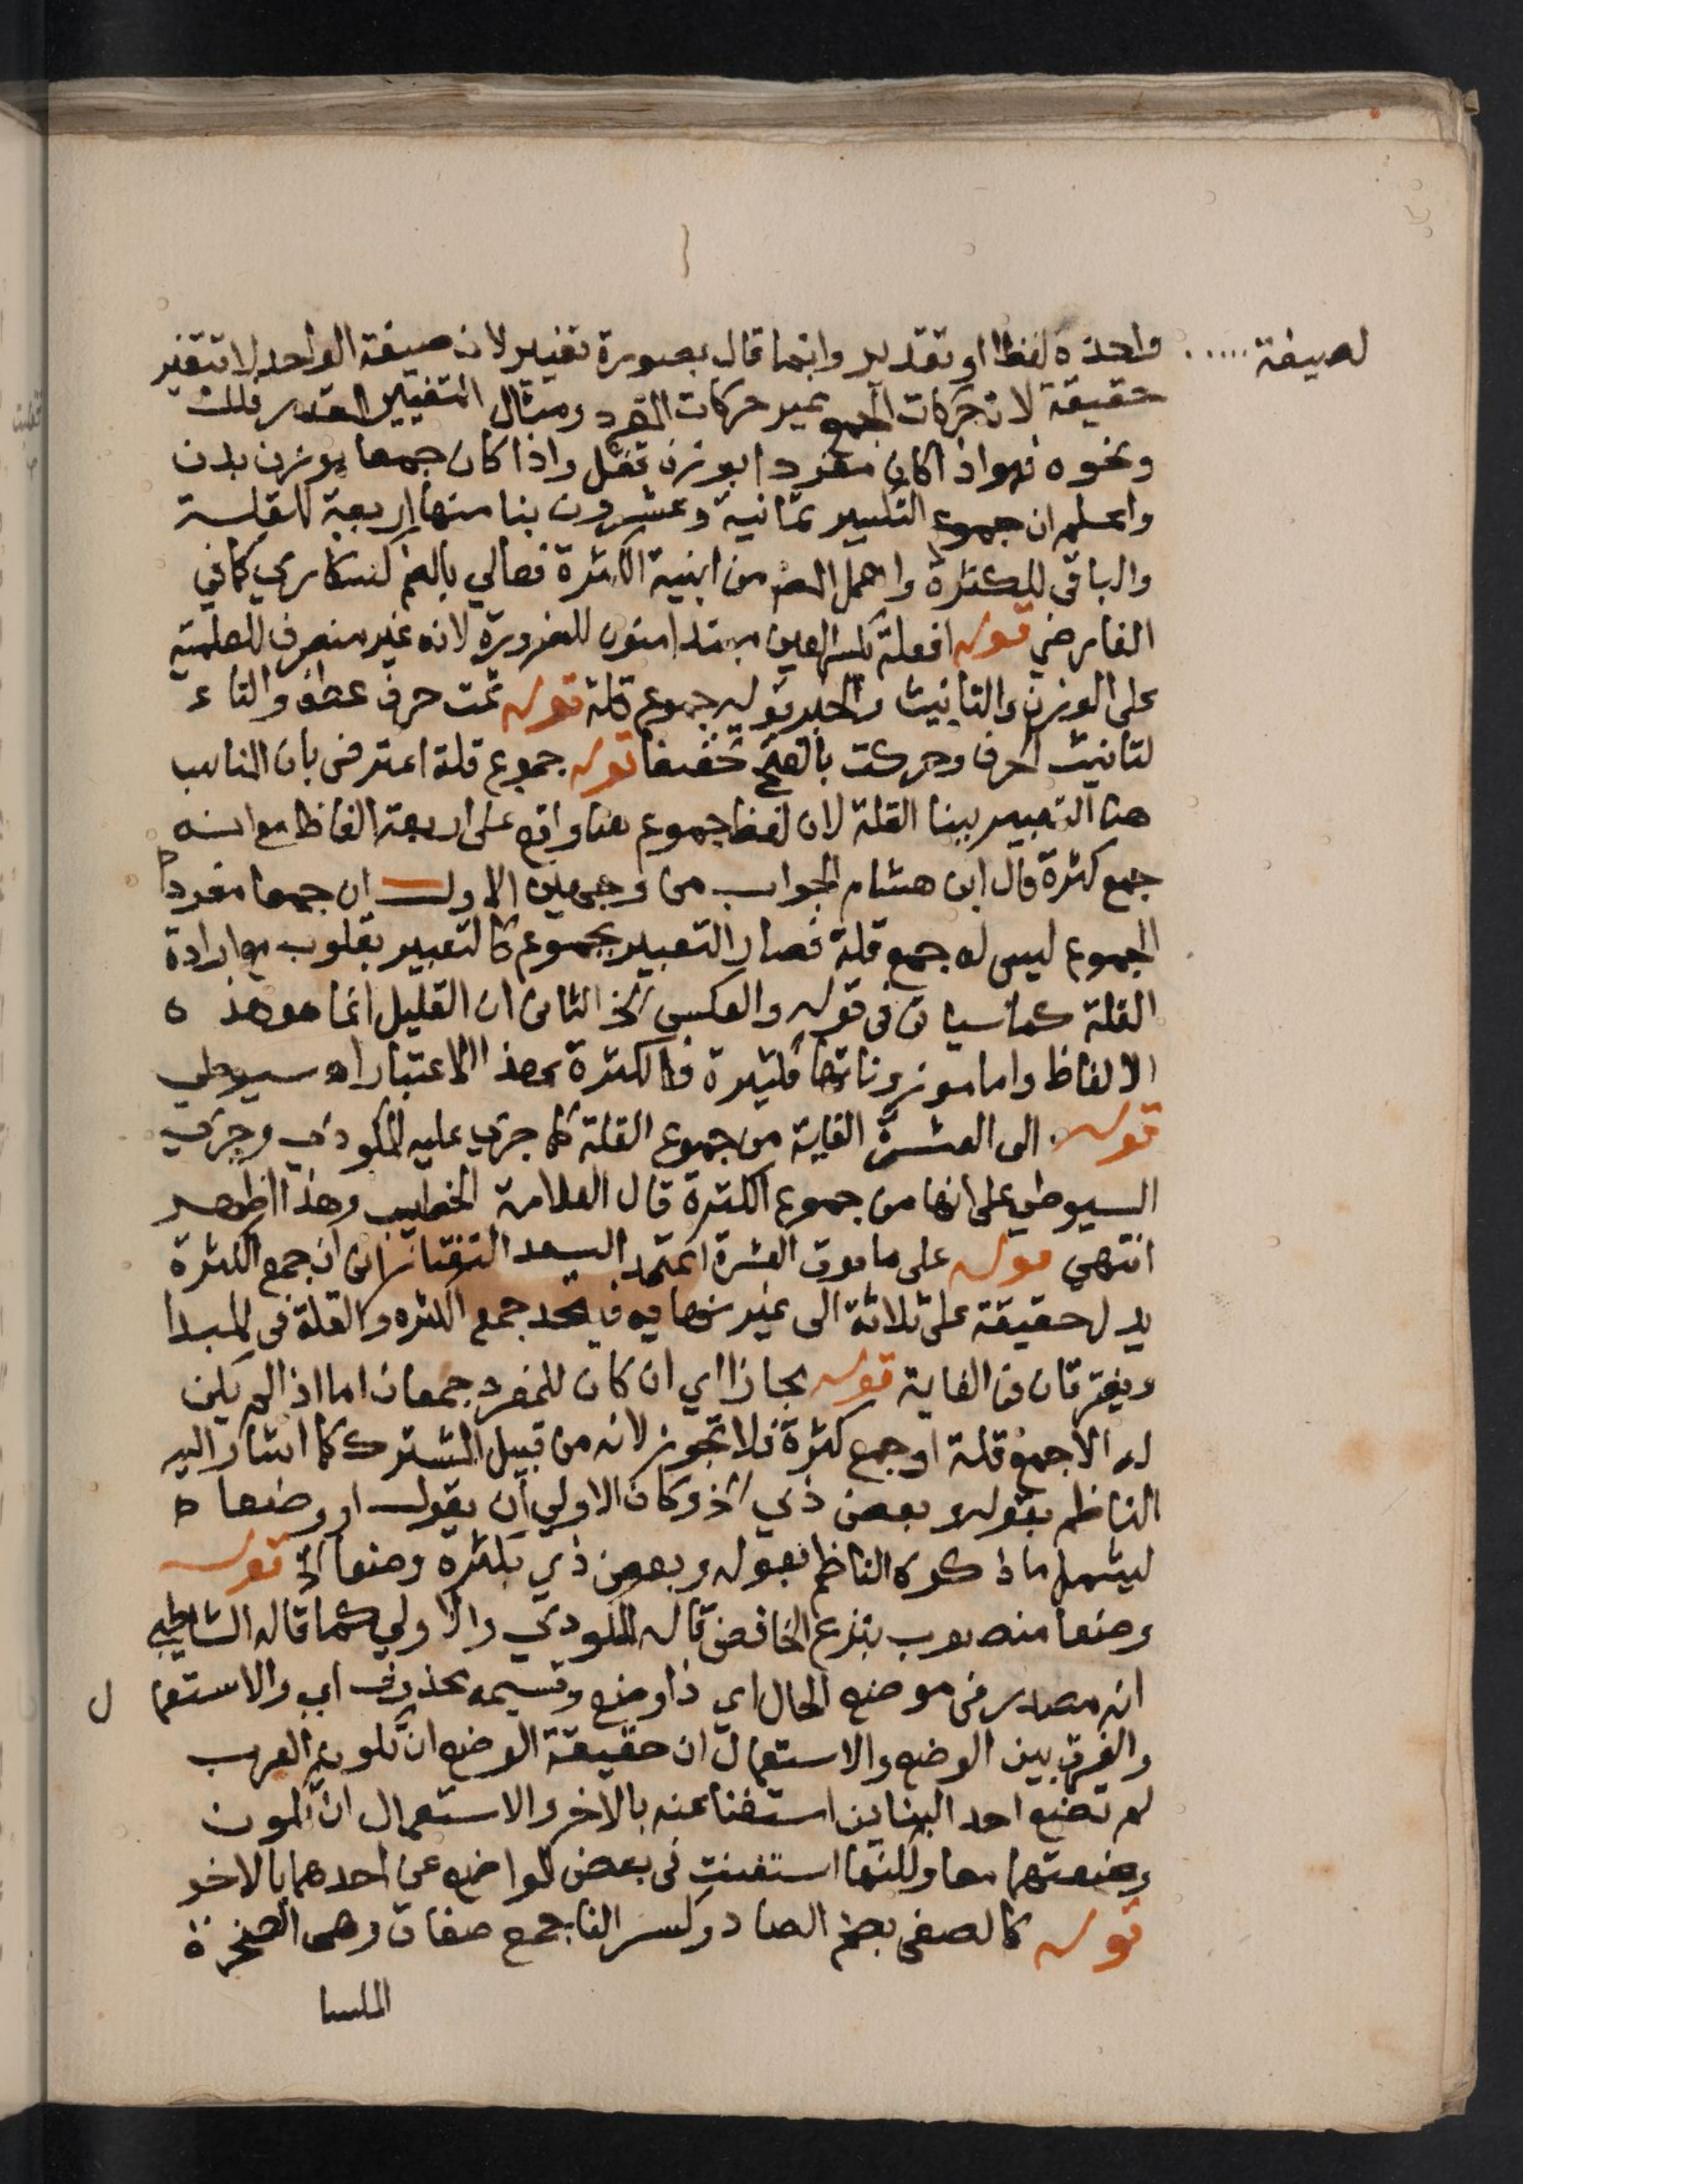 لصيغة ..... واحدة لفظا او تقدير وانما قال بصورة تغيير لان صيغة الواحد لا تتغير
حقيقة لان حركات الجمع غير حركات المفرد ومثال التغيير المقدر فلك
ونحوه فهو اذا كان مفردا بوزن قفل واذا كان جمعا بوزن بدن
واعلم ان جموع التكسير ثمانية وعشرون بنا منها اربعة للقلة
والباقى للكثرة واهمل المص من ابنية الكثرة فعالي بالضم كسكاري كما في
الفارضي قوله افعلة بكسر العين مبتدا منون للضرورة لانه غير منصرف للعلمية
على الوزن والتانيث والخبر قوله جموع قلة قوله ثمت حرف عطف والتاء
لتانيث الحرف وحركت بالفتح تخفيفا قوله جموع قلة اعترض بان المناسب
هنا التعبير ببنا القلة لان لفظ جموع هنا واقع على اربعة الفاظ مع انه
جمع كثرة قال ابن هشام الجواب من وجهين الاول ان جمعا مفرد
الجموع ليس له جمع قلة فصار التعبير بجموع كالتعبير بقلوب مع ارادة
القلة كما سياتى فى قوله والعكس الخ الثانى ان القليل انما هو هذه
الالفاظ واما موزوناتها فكثيرة فالكثرة بهذا الاعتبار اه سيوطي
قوله الى العشرة الغاية من جموع القلة كما جري عليه المكودي وجري
السيوطي على انها من جموع الكثرة قال العلامة الخطيب وهذا اظهر
انتهي قوله على ما فوق العشرة اعتمد السعد التفتازانى ان جمع الكثرة
يدل حقيقة على ثلاثة الى غير نهاية فيتحد جمع الكثره والقلة فى المبدا
ويفترقان فى الغاية قوله مجازا اي ان كان للمفرد جمعان اما اذا لم يكن
له الا جمع قلة او جمع كثرة فلا تجوز لانه من قبيل المشترك كما اشار اليه
الناظم بقوله وبعض ذي الخ وكان الاولي ان يقول او وضعا
ليشمل ما ذكره الناظم بقوله وبعض ذي بكثرة وضعا الخ قوله
وضعا منصوب بنزع الخافض قاله المكودي والاولي كما قاله الشاطبي
انه مصدر فى موضع الحال اي ذا وضع وقسيمه محذوف اي والاستعمال
والفرق بين الوضع والاستعمال ان حقيقة الوضع ان تكون العرب
لم تضع احد البناين استغنا عنه بالاخر والاستعمال ان تكون
وضعتهما معا ولكنها استغنت فى بعض المواضع عن احدهما بالاخر
قوله كالصفى بضم الصاد وكسر الفا جمع صفاة وهى الصخرة
الملسا